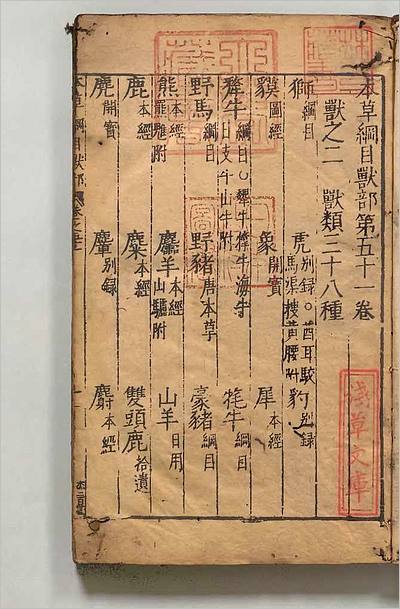 本草綱目獸部第五十一卷
獸之二 獸類三十八種
獅綱目 虎別録○酉耳駮馬渠摟黄腰附 豹別録
貘圖經 象開寶 犀本經
犛牛綱目○犛牛犏牛海牛月支牛山牛附 牦牛綱目
野馬綱目 野豬唐本草 豪豬綱目
熊本經羆魋附 麢羊本經山驢附 山羊日用
鹿本經 麋本經 雙頭鹿拾遺
麂開寶 麞別録 麝本經
本草綱目獸部
淺草文庫